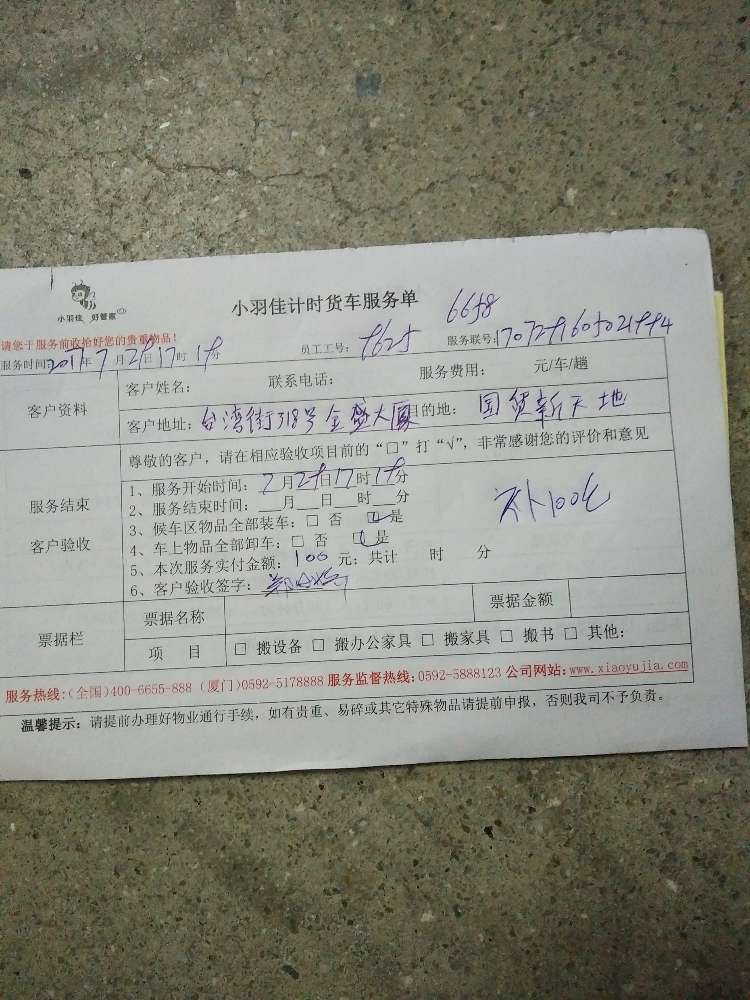 小羽佳 好管家
小羽佳计时货车服务单 6658
请您于服务前收拾好您的贵重物品！
服务时间：2017年7月29日17时19分 员工工号：9625 服务联号：
客户资料
客户姓名： 联系电话： 服务费用： 元/车/趟
客户地址：台湾街318号金盛大厦 目的地：国贸新天地
服务结束
客户验收
尊敬的客户，请在相应验收项目前的“□”打“√”，非常感谢您的评价和意见
1、服务开始时间：7月29日17时19分
2、服务结束时间：___月___日___时___分
3、候车区物品全部装车：□ 否 ☑是
4、车上物品全部卸车：□ 否 ☑是
5、本次服务实付金额：100 元；共计 时 分
6、客户验收签字：
补100元
票据栏
票据名称 票据金额
项 目 □ 搬设备 □ 搬办公家具 □ 搬家具 □ 搬书 □ 其他：
服务热线：(全国)400-6655-888 (厦门)0592-5178888 服务监督热线：0592-5888123 公司网站：www.xiaoyujia.com
温馨提示：请提前办理好物业通行手续，如有贵重、易碎或其它特殊物品请提前申报，否则我司不予负责。